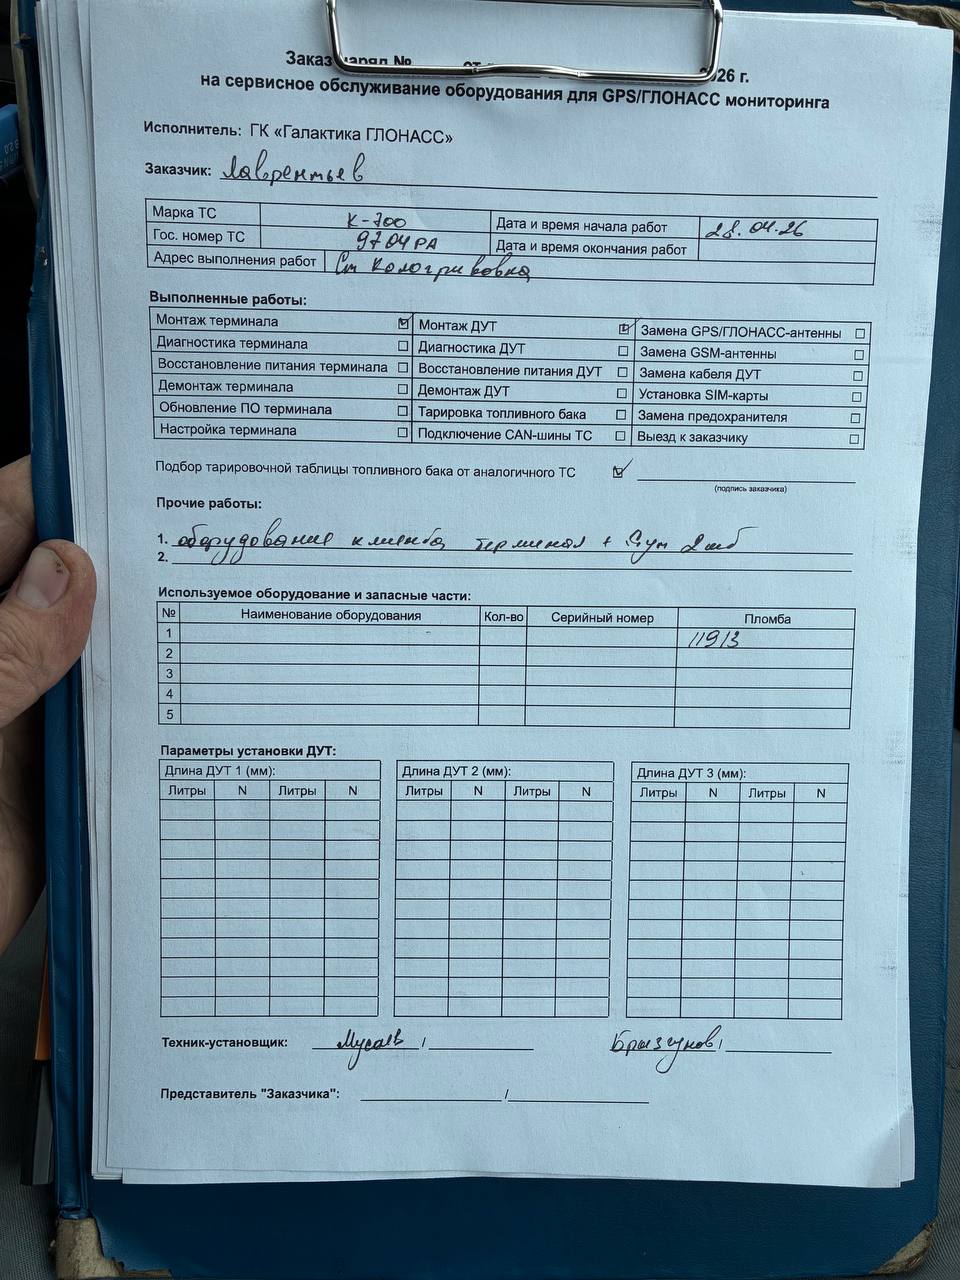 Заказ наряд № от 2026 г.
на сервисное обслуживание оборудования для GPS/ГЛОНАСС мониторинга
Исполнитель: ГК «Галактика ГЛОНАСС»
Заказчик: Лаврентьев
Марка ТС К-700 Дата и время начала работ 28.04.26
Гос. номер ТС 9704РА Дата и время окончания работ
Адрес выполнения работ Ст Кологривовка
Выполненные работы:
Монтаж терминала ☑ Монтаж ДУТ ☑ Замена GPS/ГЛОНАСС-антенны ☐
Диагностика терминала ☐ Диагностика ДУТ ☐ Замена GSM-антенны ☐
Восстановление питания терминала ☐ Восстановление питания ДУТ ☐ Замена кабеля ДУТ ☐
Демонтаж терминала ☐ Демонтаж ДУТ ☐ Установка SIM-карты ☐
Обновление ПО терминала ☐ Тарировка топливного бака ☐ Замена предохранителя ☐
Настройка терминала ☐ Подключение CAN-шины ТС ☐ Выезд к заказчику ☐
Подбор тарировочной таблицы топливного бака от аналогичного ТС ☑
(подпись заказчика)
Прочие работы:
1. оборудование клиента терминал + Дут 2шт
2.
Используемое оборудование и запасные части:
№ Наименование оборудования Кол-во Серийный номер Пломба
1 11913
2
3
4
5
Параметры установки ДУТ:
Длина ДУТ 1 (мм): Длина ДУТ 2 (мм): Длина ДУТ 3 (мм):
Литры N Литры N Литры N Литры N Литры N Литры N
Техник-установщик: Мусаев / Брызгунов /
Представитель "Заказчика": /